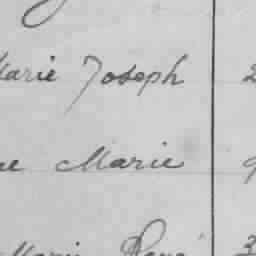 Marie Joseph 2
ne Marie 9
Marie René 3